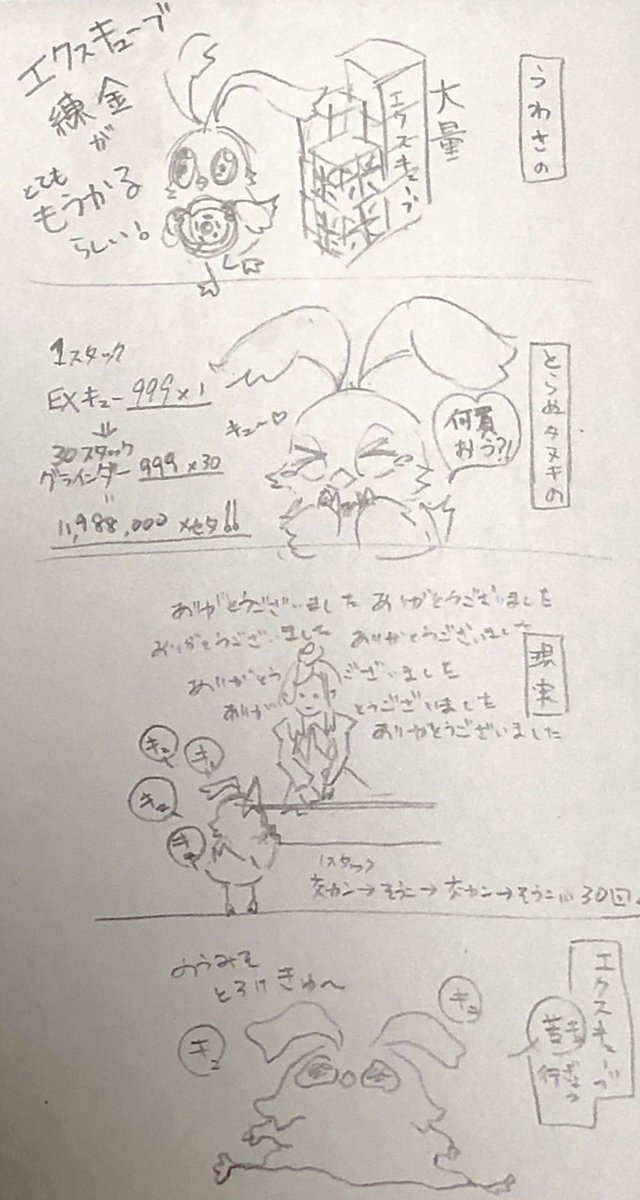 うわさの
大量
エクスキューブ
エクスキューブ
練金
が
とても
もうかる
らしい!
とらぬタヌキの
何買
おう?!
キュー♡
1スタック
EXキュー 999×1
⇓
30スタック
グラインダー 999×30
11,988,000 メセタ!!
現実
ありがとうございました ありがとうございました
ありがとうございました ありがとうございました
ありがとうございました
ありがとうございました
ありがとうございました
キュ
キュ
キュ
キュ
1スタック
交カン→そうこ→交カン→そうこ… 30回
エクスキューブ
苦
行
のうみそ
とろけきゅ〜
キュ
キュ